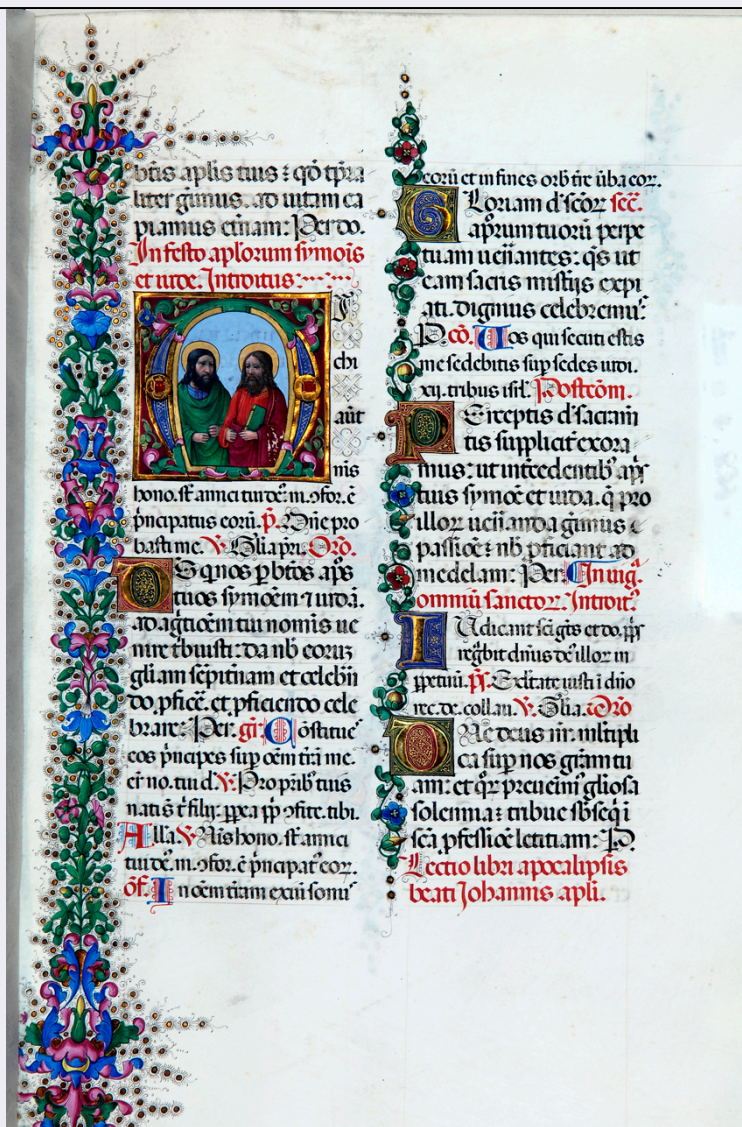 btis aplis tuis ⁊ qđ tp̄ra
liter gimus. ad uitam ca
piamus etnam: Per do.
In festo aplorum symois
et iude. Introitus:
M I
chi
aut
nis
hono. st̄ amici tui dē: m. ɔfor. ē
p̄ncipatus eorū. p̄. Dn̄e pro
basti me. V. Glia p̄ri. Oro.
DS q nos p bt̄os ap̄s
tuos symoēm ⁊ iudā.
ad agtioēm tui nomis ue
nire tbuisti: da nb̄ eoruꝫ
gliam sēpitn̄am et celebrā
do. pficē. et pficiendo cele
brare: Per. gr̄: Cōstitue
eos p̄ncipes sup oēm trā me.
er̄ no. tui d̄. V. Pro prib tuis
nati s̄ t̄ filij: ppea pp̄ ɔfite. tibi.
Alla. V. Nis hono. st̄ amici
tui dē. m. ɔfor. ē p̄ncipat eoꝝ.
of. In oēm trām exiu sonu
eorū et in fines orb tre ūba eoꝝ.
GLoriam d' scoꝝ sec̄.
ap̄rum tuorū perpe
tuam uenantes: qs ut
eam sacris mistijs expi
ati. dignius celebremu
P. cō. Uos qui secuti estis
me sedebitis sup sedes iudi.
xij. tribus isrl. Postcōm.
PErceptis d' sacram
tis supplicit exora
mus: ut intcedentib ap̄s
tuis symoē et iuda. q̄ pro
illoꝝ uen̄anda gimus
passioē: nb̄ pficiant ad
medelam: Per In uig.
omniū sanctoꝝ. Introit
IUdicant sc̄i gtes et do. pp̄s
regbit dn̄us ds̄ illoꝝ in
ppetuū. p̄s. Exltate iusti i dn̄o
rec. de. collau. V. Glia. Oro
DNe deus nr̄. mltipli
ca sup nos grām tu
am: et qꝝ preuenim gliosa
solemnia: tribue sbseq i
sc̄a pfessioē letitiam: P.
Lectio libri apocalipsis
beati Johannis apli.